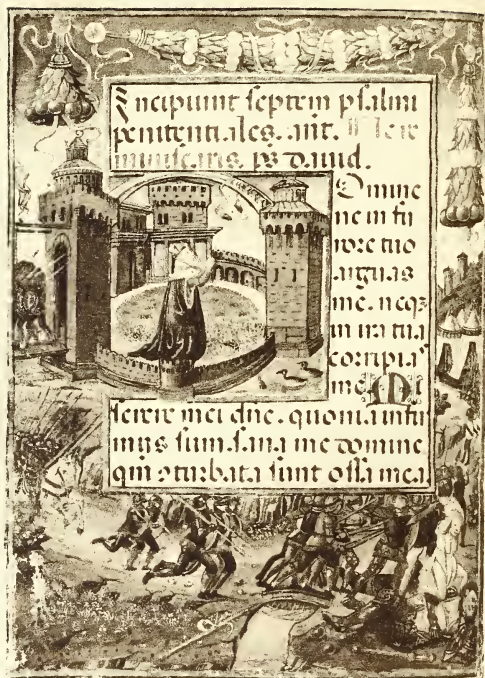 Incipiunt septem psalmi
penitentiales. ant. Ne re
miniscaris. ps dauid.
Domine
ne in fu
rore tuo
arguas
me. neqz
in ira tua
corripias
me. Mi
serere mei dne. quoniam infir
mus sum. sana me domine
qm 9turbata sunt ossa mea